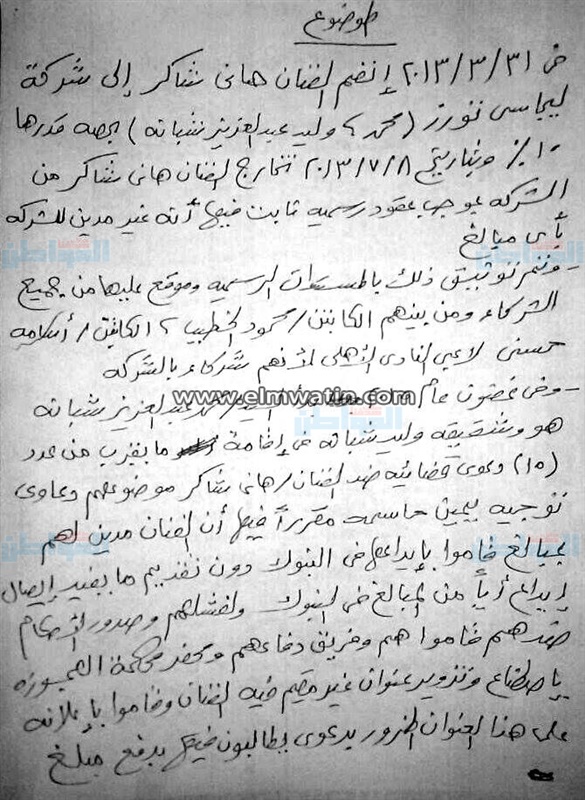 الموضوع
فى ٣١/٣/٢٠١٣ إنضم الفنان هانى شاكر إلى شركة
ليجاسى تورز (محمد، وليد عبدالعزيز شبانه) بحصه قدرها
١٠٪ وبتاريخ ٨/٧/٢٠١٣ تخارج الفنان هانى شاكر من
الشركه بموجب عقود رسميه ثابت فيها أنه غير مدين للشركه
بأى مبالغ
- وتم توثيق ذلك بالمستندات الرسميه وموقع عليها من جميع
الشركاء ومن بينهم الكابتن/ محمود الخطيب، الكابتن/ أسامه
حسنى لاعبى النادى الأهلى لأنهم شركاء بالشركه
www.elmwatin.com
- وفى غضون عام السيد/ محمد عبدالعزيز شبانه
هو وشقيقه وليد شبانه فى إقامة ما يقرب من عدد
(١٥) دعوى قضائيه ضد الفنان/ هانى شاكر موضوعهم دعاوى
توجيه يمين حاسمه مقرراً فيها أن الفنان مدين لهم
بمبالغ قاموا بإيداعها فى البنوك دون تقديم ما يفيد إيصال
إيداع أياً من المبالغ فى البنوك ولفشلهم وصدور الأحكام
ضدهم قاموا هم وفريق دفاعهم ومحضر محكمة العجوزه
بإصطناع وتزوير عنوان غير مقيم فيه الفنان وقاموا بإعلانه
على هذا العنوان المزور بدعوى يطالبون فيها بدفع مبلغ
المواطن